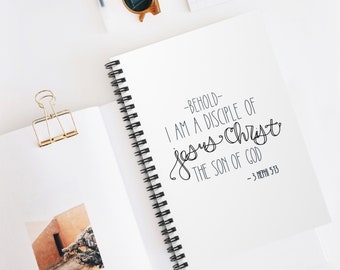 -BEHOLD-
I AM A DISCIPLE OF
Jesus Christ,
THE SON OF GOD
- 3 NEPHI 5:13